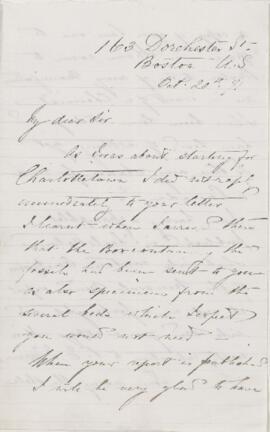 163 Dorchester St-
Boston U.S
Oct. 20th
My dear Sir.
As I was about starting for
Charlottetown I did not reply
immediately to your letter
I learnt when I arrived there
that the the
fossils had been sent to you
as also specimens from the
several beds which I expect
you would not need -
When your report is published
I will be very glad to have